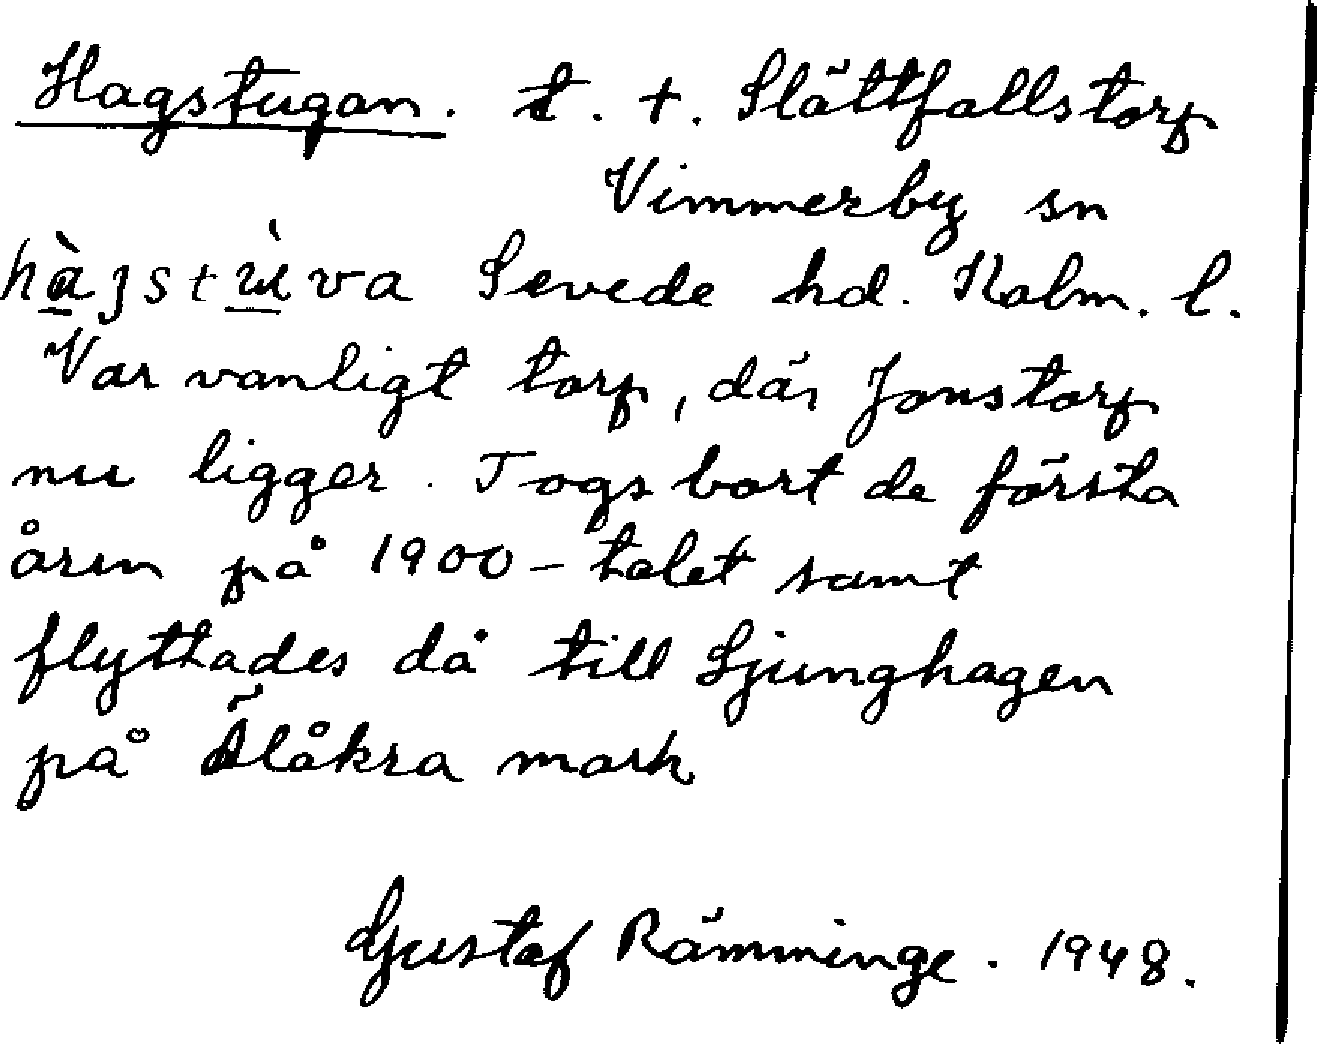 Hagstugan. t. +. Slättfallstorp
Vimmerby sn
hàgstùva Sevede hd. Kalm. l.
Var vanligt torp, där Jonstorp
nu ligger. Togs bort de första
åren på 1900-talet samt
flyttades då till Ljunghagen
på Ålåkra mark
Gustaf Rämminge. 1948.